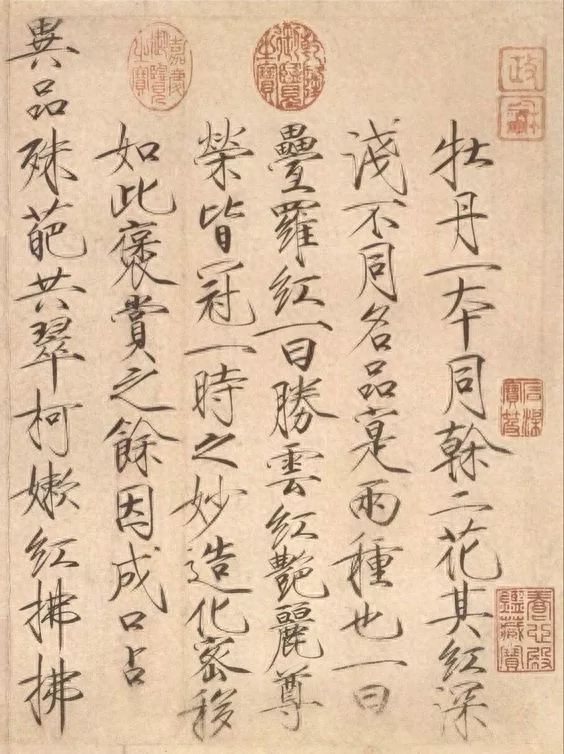 牡丹一夲同榦二花其紅深
淺不同名品寔兩種也一曰
疊羅紅一曰勝雲紅艷麗尊
榮皆冠一時之妙造化密移
如此褒賞之餘因成口占
異品殊葩共翠柯嫩紅拂拂
政龢
乾隆御覽之寶
嘉慶御覽之寶
養心殿鑒藏寶